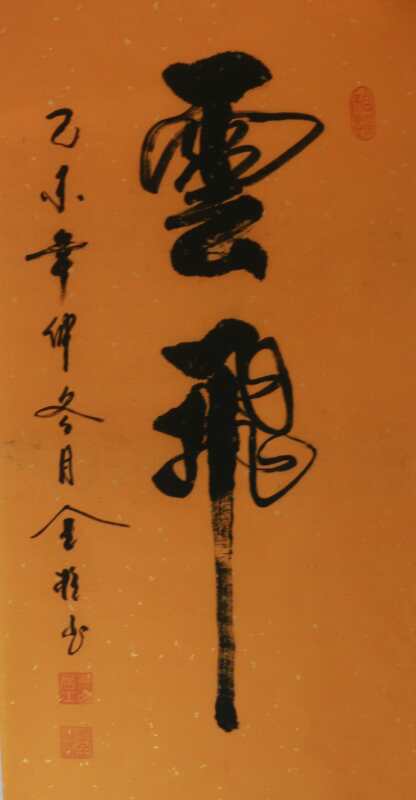 雲飛
乙未年仲冬月金